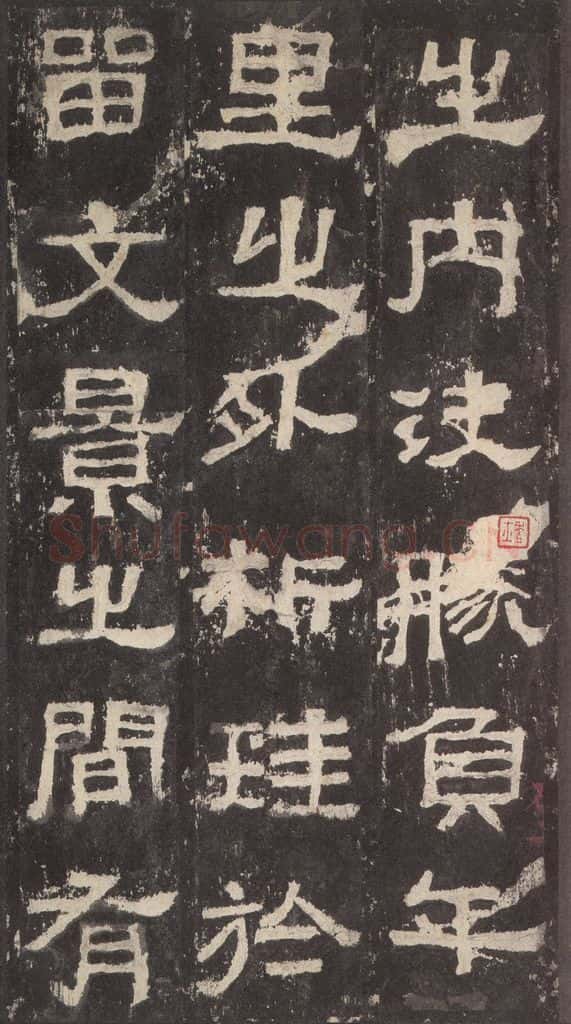 之內決勝負千
里之外析珪於
留文景之間有
Shufawang.CN